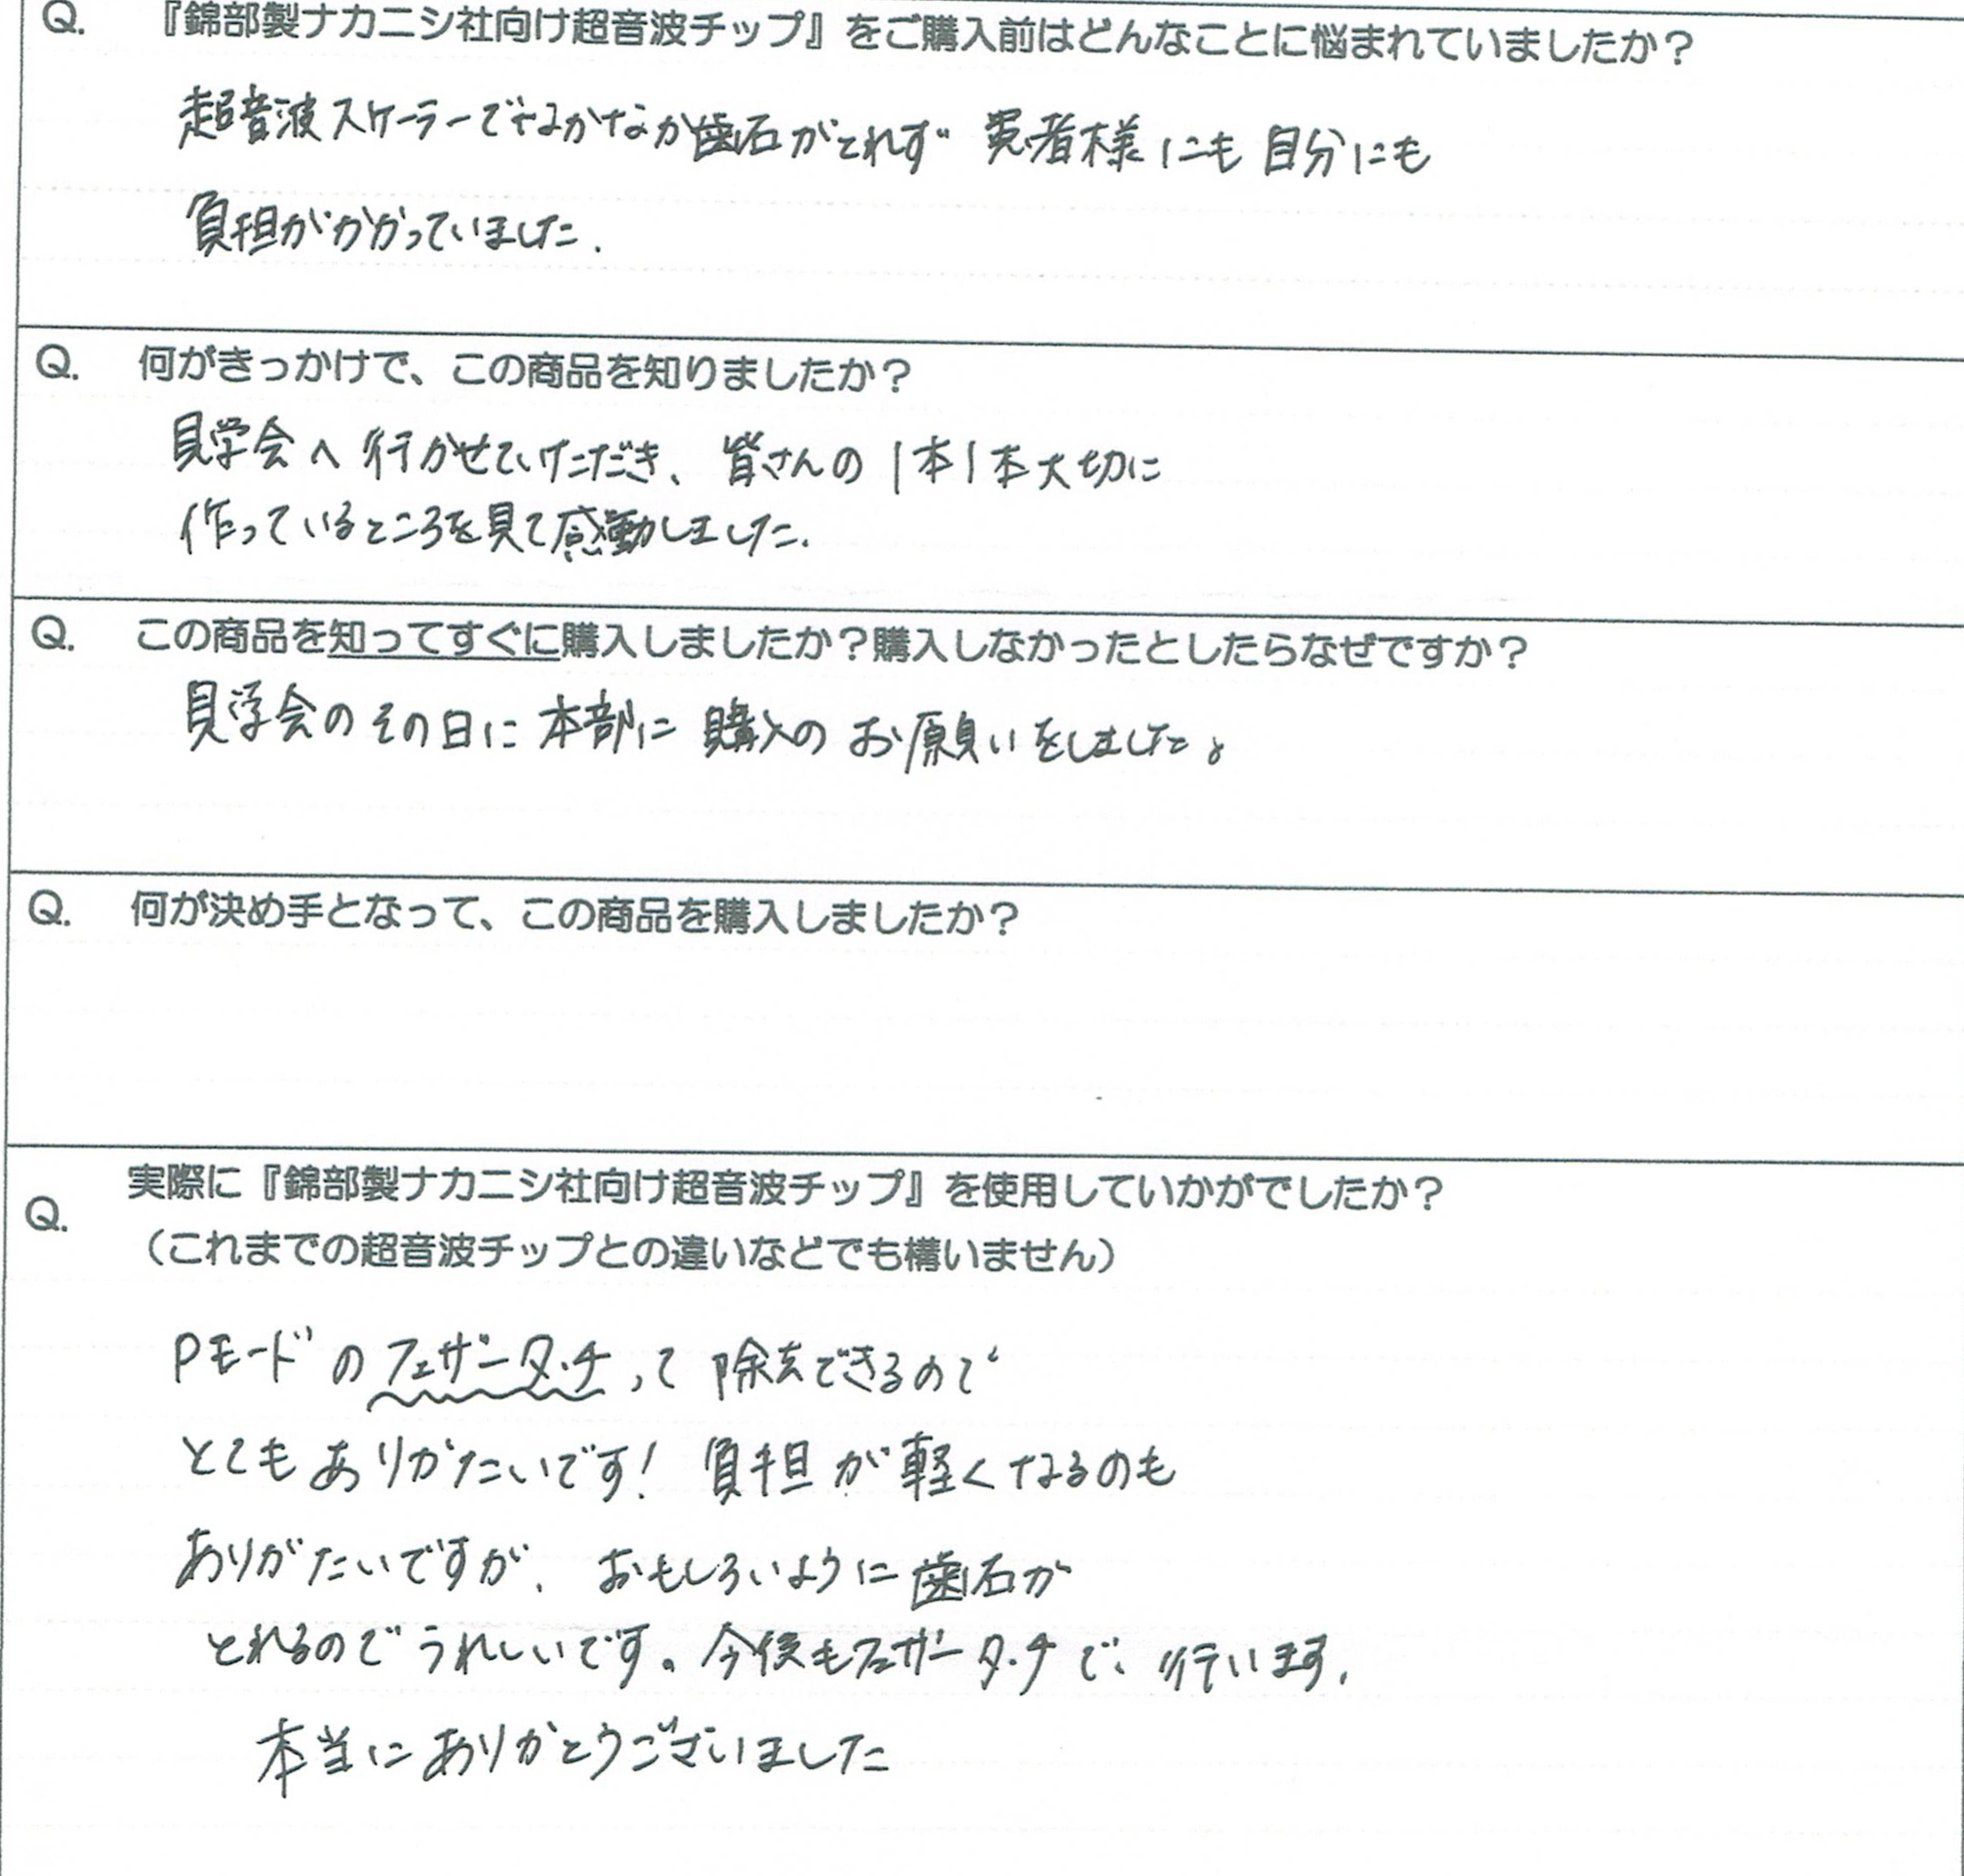 Q. 『錦部製ナカニシ社向け超音波チップ』をご購入前はどんなことに悩まれていましたか？
超音波スケーラーでなかなか歯石がとれず 患者様にも自分にも
負担がかかっていました.
Q. 何がきっかけで、この商品を知りましたか？
見学会へ行かせていただき、皆さんの1本1本大切に
作っているところを見て感動しました.
Q. この商品を知ってすぐに購入しましたか？購入しなかったとしたらなぜですか？
見学会のその日に本部に購入のお願いをしました。
Q. 何が決め手となって、この商品を購入しましたか？
Q. 実際に『錦部製ナカニシ社向け超音波チップ』を使用していかがでしたか？
（これまでの超音波チップとの違いなどでも構いません）
Pモードのフェザータッチって除去できるので
とてもありがたいです! 負担が軽くなるのも
ありがたいですが、おもしろいように歯石が
とれるのでうれしいです。今後もフェザータッチで行います.
本当にありがとうございました